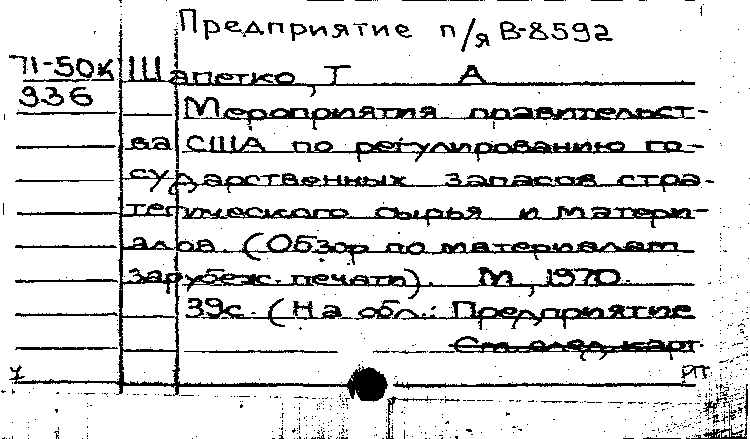 Предприятие п/я В-8592
71-50к Шапетко, Т А
936 Мероприятия правительст-
ва США по регулированию го-
сударственных запасов стра-
тегического сырья и матери-
алов. (Обзор по материалам
зарубеж. печати). М., 1970.
39с. (На обл.: Предприятие
См. след. карт.